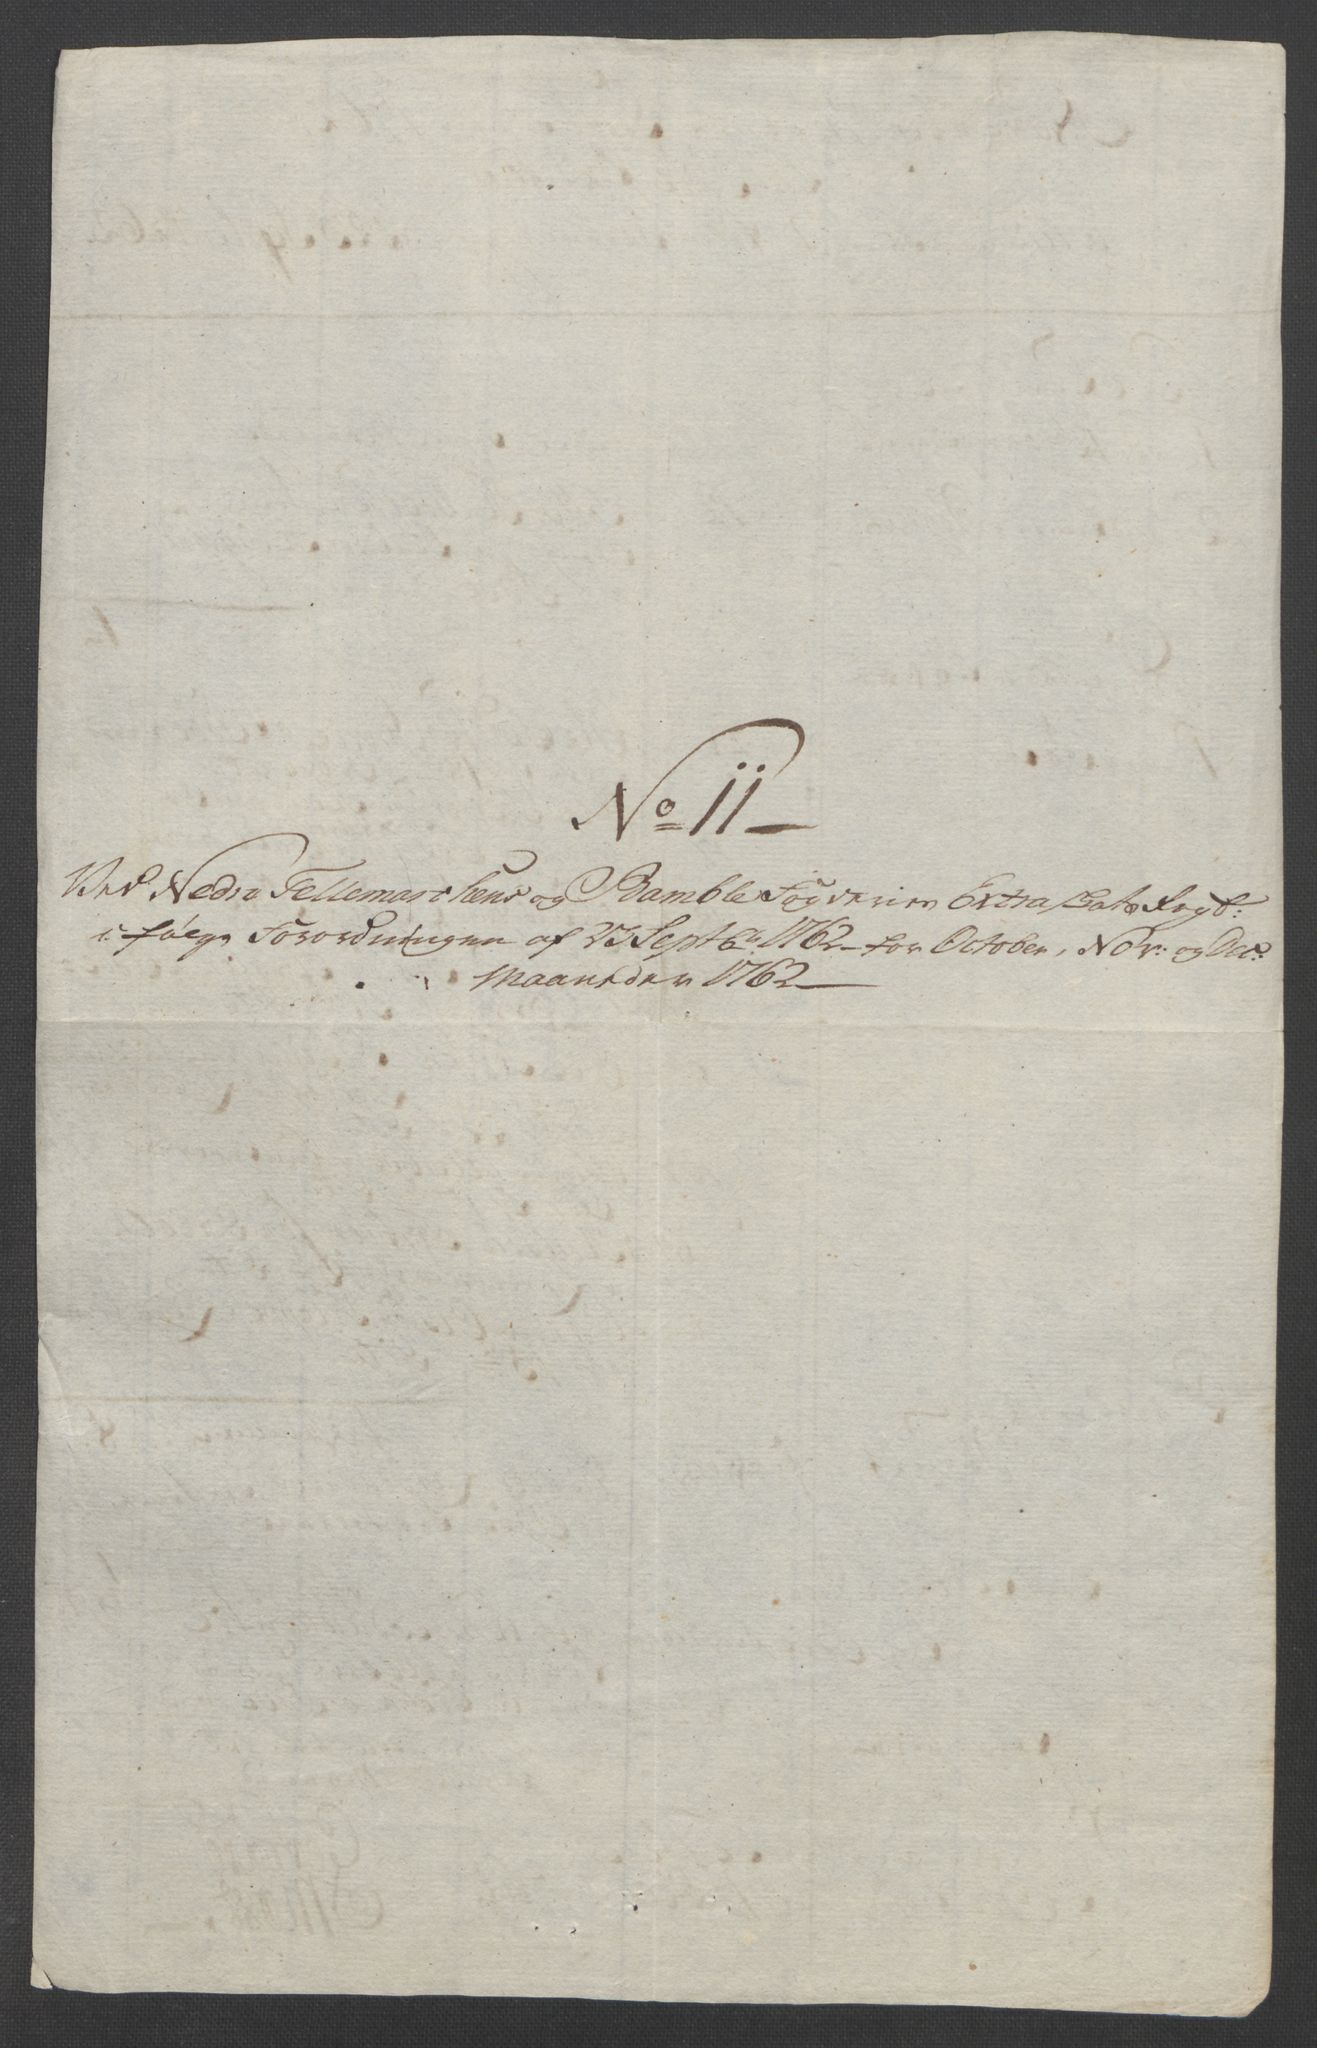 No 11
Ved Nedre Tellemarchens og Bamble Fogderies Extra Skats Regt:
i følge Forordningen af 23 Septbr 1762 for October, Nov: og Dec:
Maaneder 1762